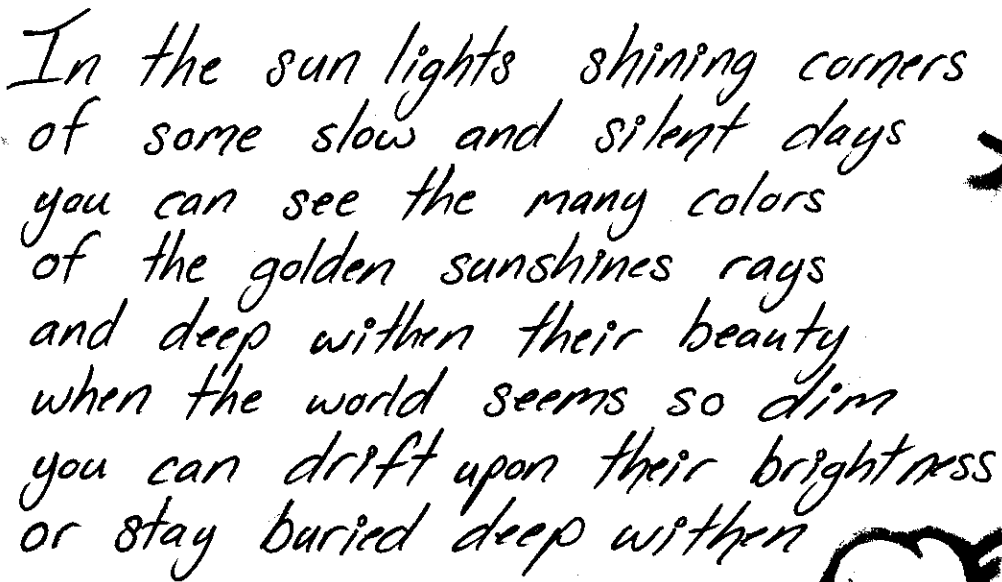 In the sun lights shining corners
of some slow and silent days
you can see the many colors
of the golden sunshines rays
and deep withen their beauty
when the world seems so dim
you can drift upon their brightness
or stay buried deep withen